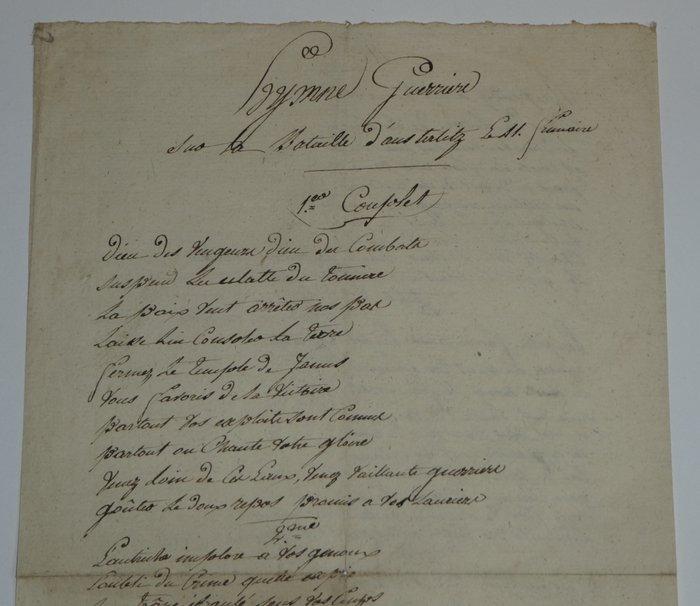 hymne Guerriere
sur la Bataille d'austerlitz Le 11. frimaire
1.er Couplet
dieu des vengeurs dieu du Combats
suspend Les eclatte du tonnere
La paix vient arrêter nos pas
Laisse Lui Consoler la terre
fermez Le temple de Janus
vous favoris de la victoire
partout vos exploits sont Connus
partout on Chante votre glôire
venez loin de Ces Lieux, venez vaillants guerriers
goûter Le doux repos promis a vos Lauriers
2.me
L'autriche implore a vos genoux
L'oubli du Crime qu'elle expie
trône ébranlé sous vos Coups